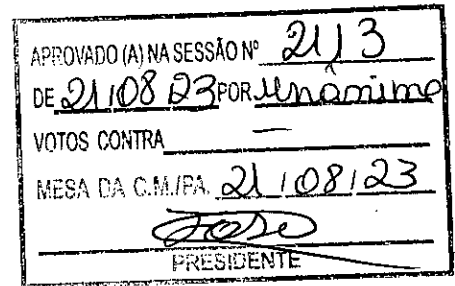 APROVADO (A) NA SESSÃO Nº 2113
DE 21/08/23 POR Unânime
VOTOS CONTRA —
MESA DA C.M./PA. 21/08/23
PRESIDENTE